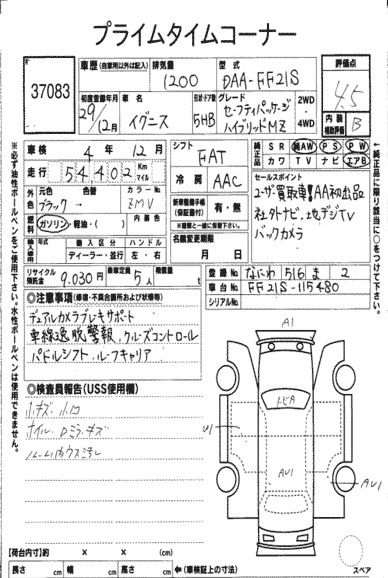 プライムタイムコーナー
37083
車歴 (自家用以外は記入)
排気量
型式
評価点
1200
DAA-FF21S
4.5
初度登録年月
車名
形状・ドア数
グレード
29/12月
イグニス
5HB
セーフティパッケージ
ハイブリッドMZ
2WD
4WD
内装
補助評価
B
車検 4年 12月
シフト
FAT
純正品
SR AW PS PW
カワ TV ナビ エアB
走行 54402 Km マイル
冷房
AAC
セールスポイント
ユーザー買取車!AA初出品
社外ナビ、地デジTV
バックカメラ
外色
元色
色替
カラーNo
ブラック→
ZMV
燃料
ガソリン・軽油・( )
内装色
新車整備手帳
(保証書付)
有・無
※書類と一緒に保管下さい。
輸入車
年式
輸入区分
ハンドル
ディーラー・並行
左・右
名義変更期限
月 日
リサイクル預託金
9.030円
乗車定員
5人
積載量
t
登録No なにわ 516 ま 2
車台No FF21S-115480
シリアルNo
◎注意事項 (修復・不具合箇所および状態等)
デュアルカメラブレーキサポート
車線逸脱警報、クルーズコントロール
パドルシフト、ルーフキャリア
◎検査員報告 (USS使用欄)
小キズ、小凹
ホイル、Dミラーキズ
A1
トビA
U1
AU1
AU1
スペア
【荷台内寸】 × × (cm)
長さ cm 幅 cm 高さ cm ←(車検証上の寸法)
※必ず油性ボールペンをご使用下さい。水性ボールペンは使用できません。
↑純正品に限り該当に○をつけて下さい。